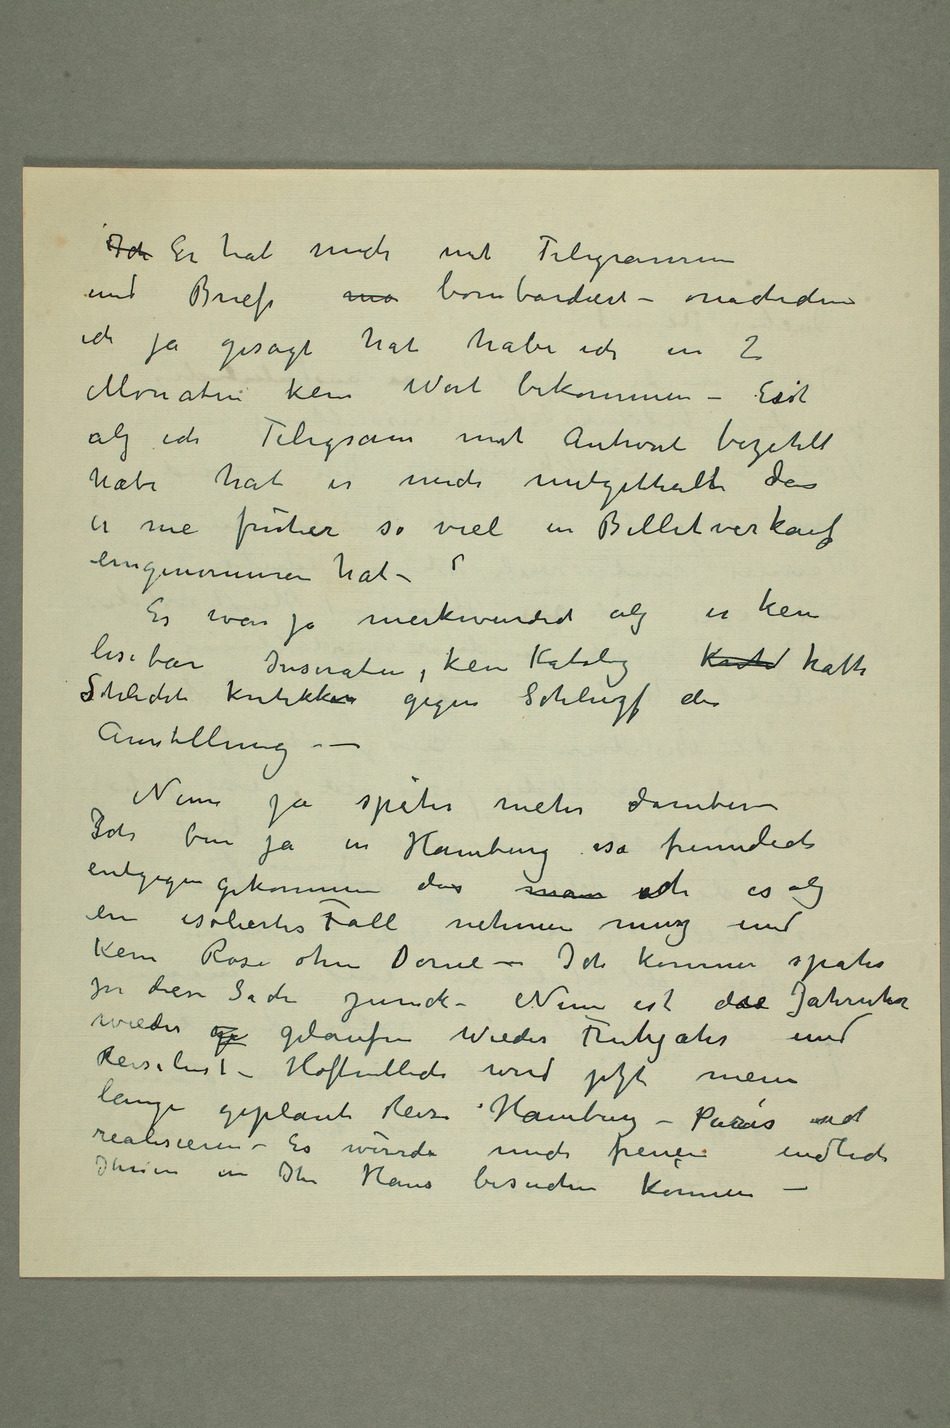 Ich Er hat mich mit Telegrammen
und Briefe ma bombardiert – nachdem
ich ja gesagt hat habe ich in 2
Monaten kein Wort bekommen – Erst
als ich Telegram mit Antwort bezahlt
habe hat er mich mitgetheilt das
er nie früher so viel in Billetverkauf
eingenommen hat –
Es war ja merkwürdich als er kein
lesebar Inseraten, kein Katalog Kritik hatte
Schlecht kritikken gegen Schlusz der
Ausstellung –
Nun ja später mehr darüber
Ich bin ja in Hamburg so freundlich
entgegengekommen das man ich es als
ein isoliertes Fall nehmen musz und
kein Rose ohne Dorne – Ich komme später
zu diese Sache zurück – Nun ist das Jahruhr
wieder ge gelaufen wieder Frühjahr und
Reiselust – Hoffentlich wird jetzt mein
lange geplante Reise Hamburg – Paris
realisieren – Es würde mich freuen endlich
Ihnen in Ihr Haus besuchen können –